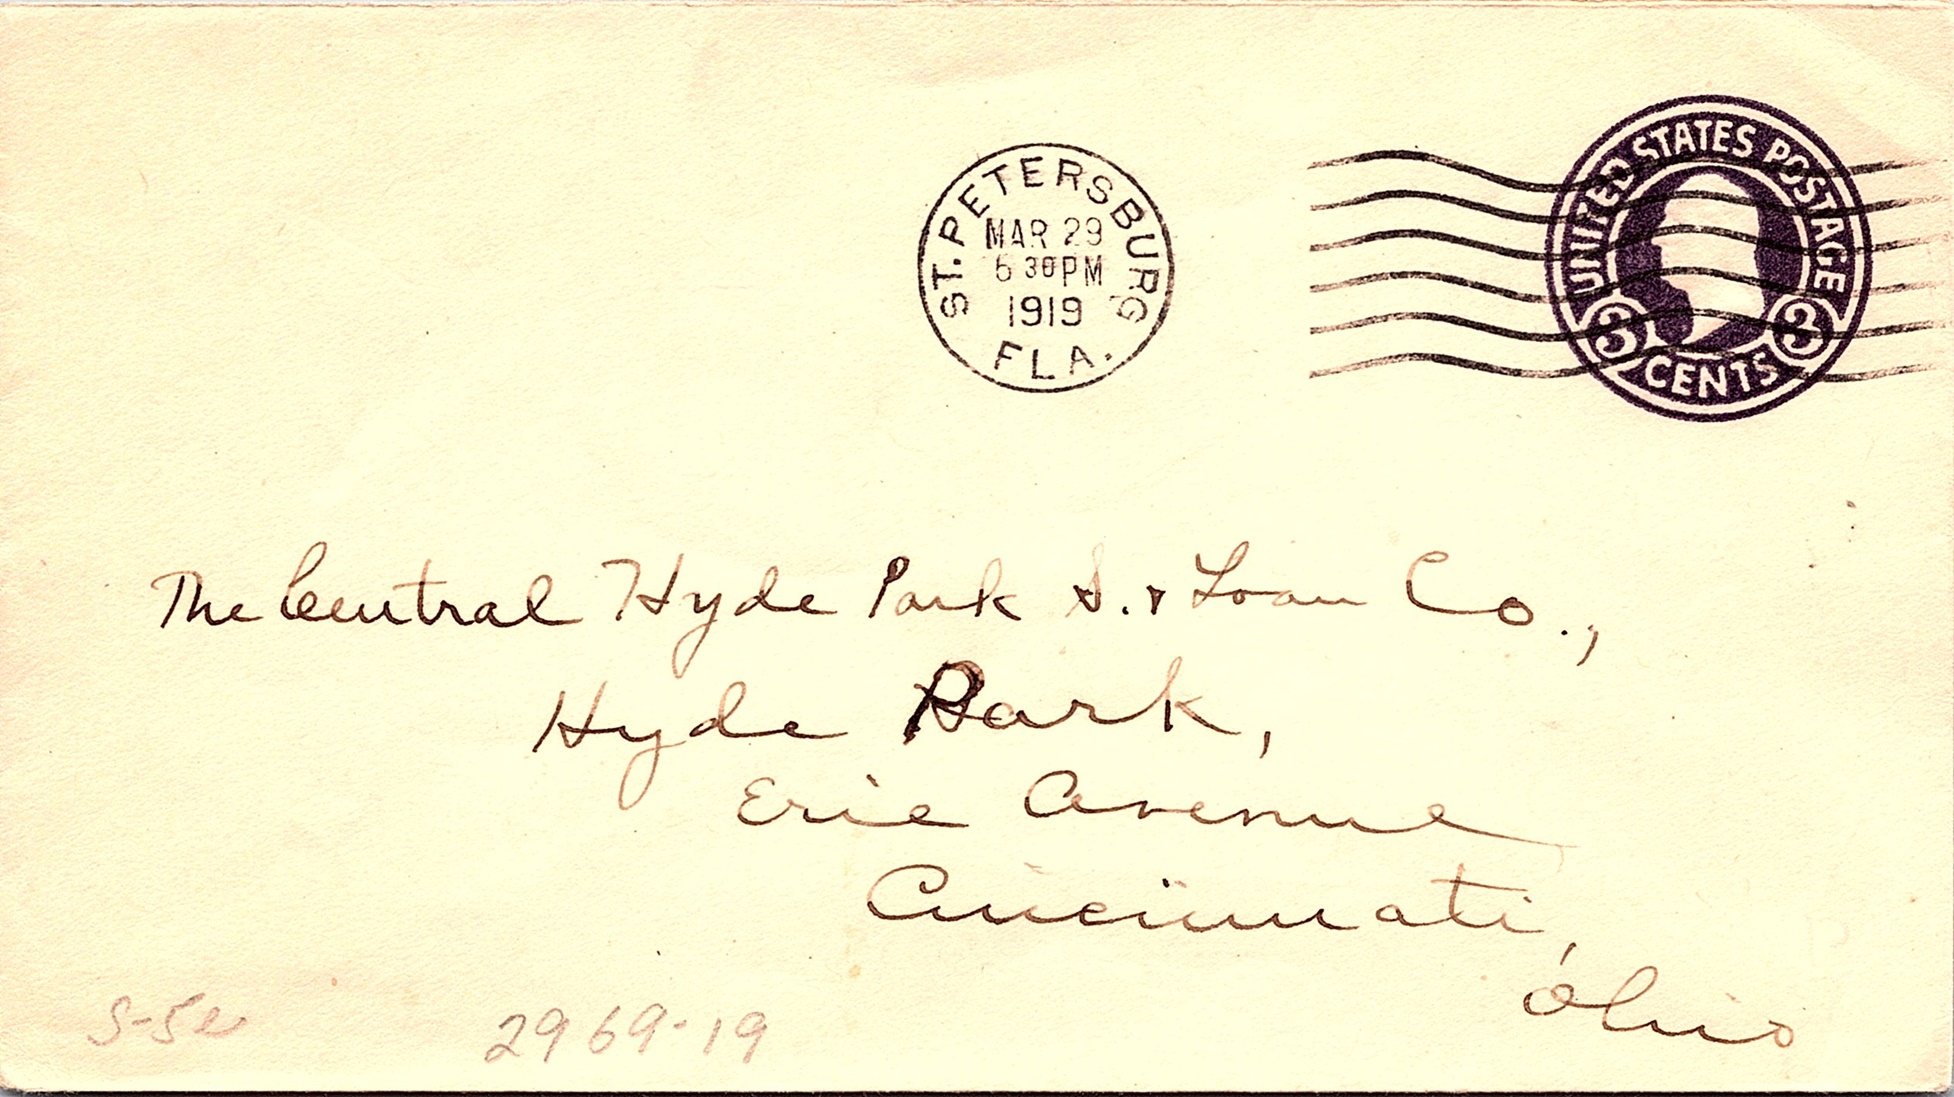 ST. PETERSBURG
MAR 29
6 30 PM
1919
FLA.
UNITED STATES POSTAGE
3 CENTS 3
The Central Hyde Park S. & Loan Co.,
Hyde Park,
Erie Avenue
Cincinnati,
Ohio
2969-19